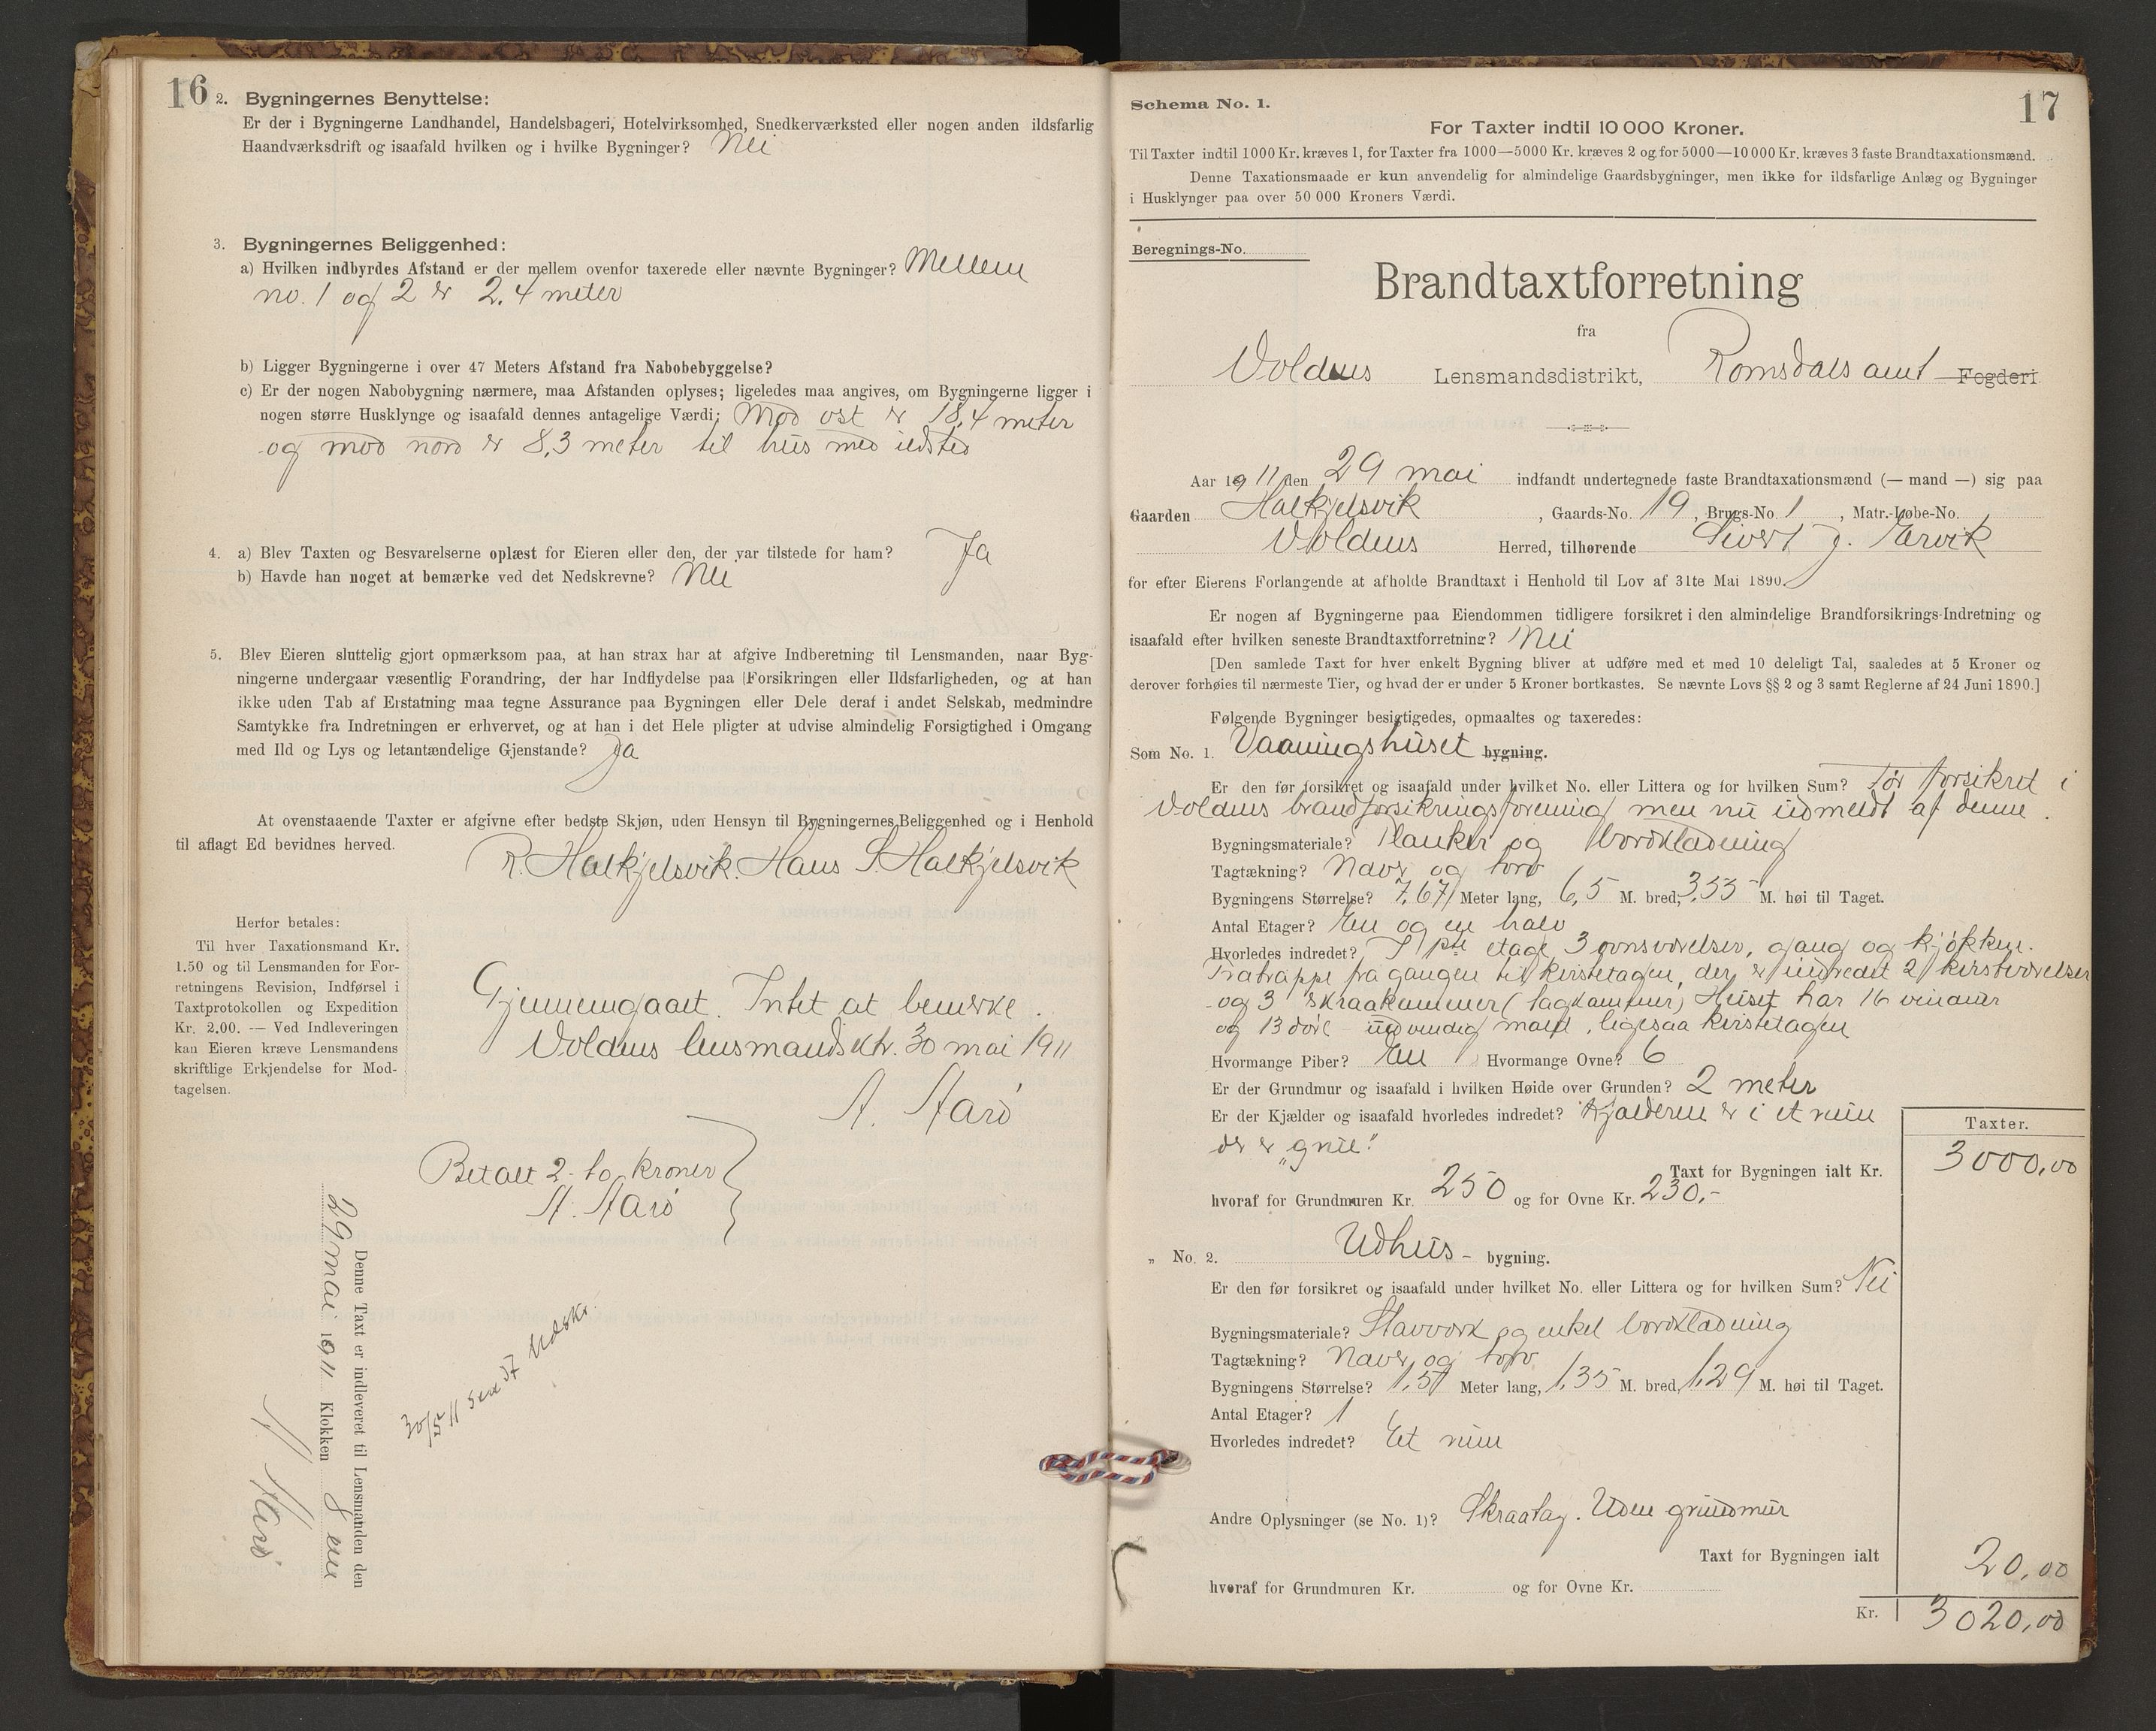 16
2. Bygningernes Benyttelse:
Er der i Bygningerne Landhandel, Handelsbageri, Hotelvirksomhed, Snedkerværksted eller nogen anden ildsfarlig
Haandværksdrift og isaafald hvilken og i hvilke Bygninger? Nei
3. Bygningernes Beliggenhed:
a) Hvilken indbyrdes Afstand er der mellem ovenfor taxerede eller nævnte Bygninger? Mellem
no. 1 og 2 er 2,4 meter
b) Ligger Bygningerne i over 47 Meters Afstand fra Nabobebyggelse?
c) Er der nogen Nabobygning nærmere, maa Afstanden oplyses; ligeledes maa angives, om Bygningerne ligger i
nogen større Husklynge og isaafald dennes antagelige Værdi; Mod ost er 18,4 meter
og mod nord er 8,3 meter til hus med ildsted
4. a) Blev Taxten og Besvarelserne oplæst for Eieren eller den, der var tilstede for ham? Ja
b) Havde han noget at bemærke ved det Nedskrevne? Nei
5. Blev Eieren sluttelig gjort opmærksom paa, at han strax har at afgive Indberetning til Lensmanden, naar Byg-
ningerne undergaar væsentlig Forandring, der har Indflydelse paa Forsikringen eller Ildsfarligheden, og at han
ikke uden Tab af Erstatning maa tegne Assurance paa Bygningen eller Dele deraf i andet Selskab, medmindre
Samtykke fra Indretningen er erhvervet, og at han i det Hele pligter at udvise almindelig Forsigtighed i Omgang
med Ild og Lys og letantændelige Gjenstande? Ja
At ovenstaaende Taxter er afgivne efter bedste Skjøn, uden Hensyn til Bygningernes Beliggenhed og i Henhold
til aflagt Ed bevidnes herved.
R. Halkjelsvik. Hans S. Halkjelsvik
Herfor betales:
Til hver Taxationsmand Kr.
1.50 og til Lensmanden for For-
retningens Revision, Indførsel i
Taxtprotokollen og Expedition
Kr. 2.00. — Ved Indleveringen
kan Eieren kræve Lensmandens
skriftlige Erkjendelse for Mod-
tagelsen.
Gjennemgaaet. Intet at bemerke.
Voldens lensmandsktr. 30 mai 1911
A. Aarø
Betalt 2- to kroner
A. Aarø
Denne Taxt er indleveret til Lensmanden den
29 mai 1911 Klokken 8 em
A. Aarø
30/5 11 sendt Udskr.
17
Schema No. 1.
For Taxter indtil 10 000 Kroner.
Til Taxter indtil 1000 Kr. kræves 1, for Taxter fra 1000—5000 Kr. kræves 2 og for 5000—10000 Kr. kræves 3 faste Brandtaxationsmænd.
Denne Taxationsmaade er kun anvendelig for almindelige Gaardsbygninger, men ikke for ildsfarlige Anlæg og Bygninger
i Husklynger paa over 50 000 Kroners Værdi.
Beregnings-No.
Brandtaxtforretning
fra
Voldens Lensmandsdistrikt, Romsdals amt Fogderi
Aar 1911 den 29 mai indfandt undertegnede faste Brandtaxationsmænd (— mand —) sig paa
Gaarden Halkjelsvik, Gaards-No. 19, Brugs-No. 1, Matr.-Løbe-No.
Voldens Herred, tilhørende Sivert J. Ervik
for efter Eierens Forlangende at afholde Brandtaxt i Henhold til Lov af 31te Mai 1890.
Er nogen af Bygningerne paa Eiendommen tidligere forsikret i den almindelige Brandforsikrings-Indretning og
isaafald efter hvilken seneste Brandtaxtforretning? Nei
[Den samlede Taxt for hver enkelt Bygning bliver at udføre med et med 10 deleligt Tal, saaledes at 5 Kroner og
derover forhøies til nærmeste Tier, og hvad der er under 5 Kroner bortkastes. Se nævnte Lovs §§ 2 og 3 samt Reglerne af 24 Juni 1890.]
Følgende Bygninger besigtigedes, opmaaltes og taxeredes:
Som No. 1. Vaaningshuset bygning.
Er den før forsikret og isaafald under hvilket No. eller Littera og for hvilken Sum? Før forsikret i
Voldens brandforsikringsforening men nu udmeldt af denne.
Bygningsmateriale? Planker og bordklædning
Tagtækning? Never og torv
Bygningens Størrelse? 7,67 Meter lang, 6,5 M. bred, 3,55 M. høi til Taget.
Antal Etager? En og en halv
Hvorledes indredet? I 1ste etage 3 ovnsværelser, gang og kjøkken.
Trætrappe fra gangen til kvistetagen, der er indredet 2 kvistværelser
og 3 skraakammer (tagkammer) Huset har 16 vinduer
og 13 døre – udvendig malt, ligesaa kvistetagen
Hvormange Piber? En Hvormange Ovne? 6
Er der Grundmur og isaafald i hvilken Høide over Grunden? 2 meter
Er der Kjælder og isaafald hvorledes indredet? Kjælderen er i et rum
der er „grue"
Taxter.
Taxt for Bygningen ialt Kr. 3000,00
hvoraf for Grundmuren Kr. 250 og for Ovne Kr. 230,-
„ No. 2. Udhus- bygning.
Er den før forsikret og isaafald under hvilket No. eller Littera og for hvilken Sum? Nei
Bygningsmateriale? Stavverk og enkel bordklædning
Tagtækning? Never og torv
Bygningens Størrelse? 1,57 Meter lang, 1,35 M. bred 1,29 M. høi til Taget.
Antal Etager? 1
Hvorledes indredet? Et rum
Andre Oplysninger (se No. 1)? Skraatag. Uden grundmur
Taxt for Bygningen ialt 20,00
hvoraf for Grundmuren Kr. og for Ovne Kr.
Kr. 3020,00